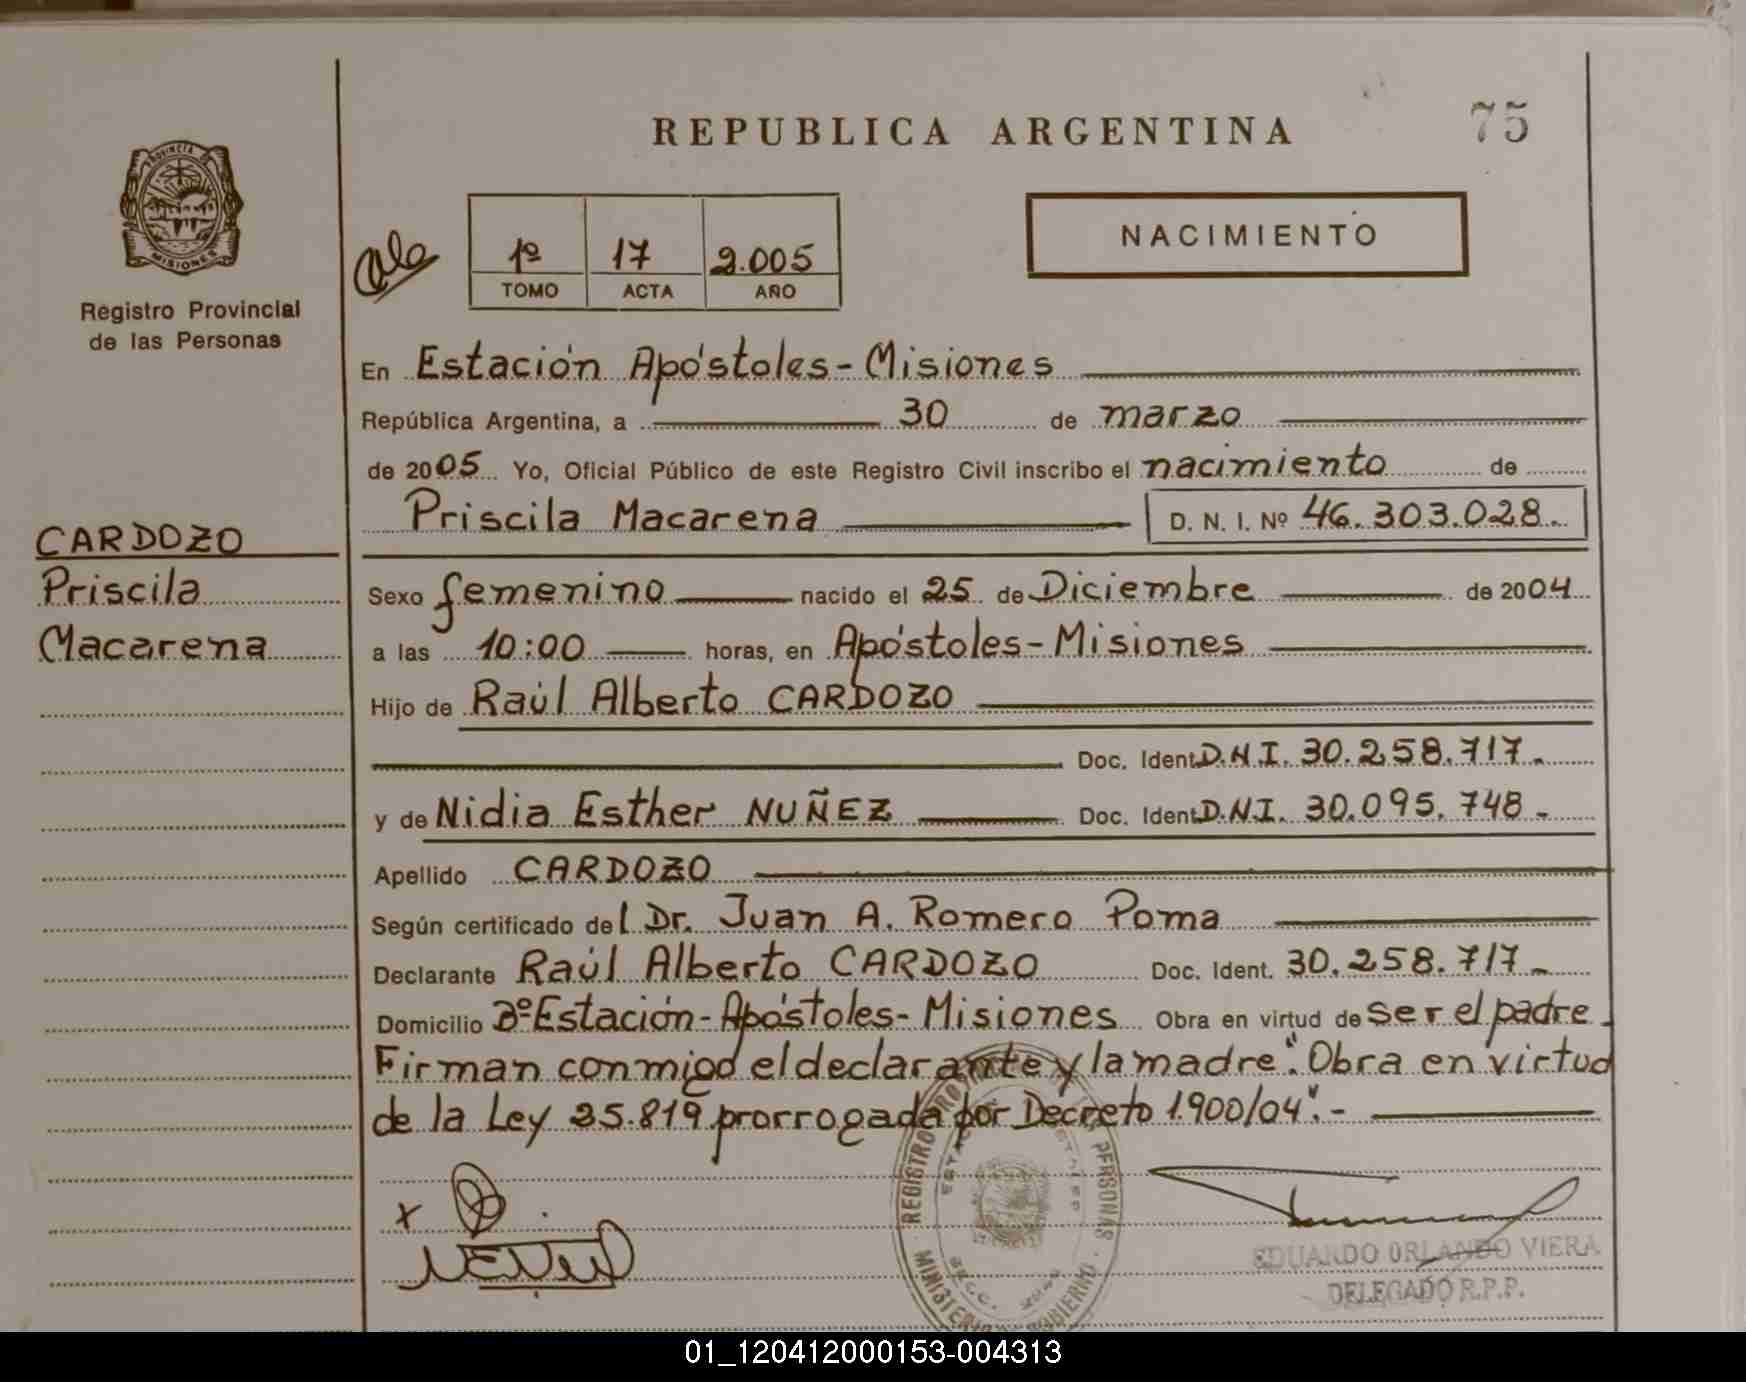 REPUBLICA ARGENTINA
75
PROVINCIA DE
MISIONES
Registro Provincial
de las Personas
1º 17 2.005
TOMO ACTA AÑO
NACIMIENTO
En Estación Apóstoles - Misiones
República Argentina, a 30 de marzo
de 2005 Yo, Oficial Público de este Registro Civil inscribo el nacimiento de
Priscila Macarena D. N. I. Nº 46.303.028.
CARDOZO
Priscila
Macarena
Sexo femenino nacido el 25 de Diciembre de 2004
a las 10:00 horas, en Apóstoles - Misiones
Hijo de Raúl Alberto CARDOZO
Doc. Ident. D.N.I. 30.258.717.-
y de Nidia Esther NUÑEZ Doc. Ident. D.N.I. 30.095.748-
Apellido CARDOZO
Según certificado del Dr. Juan A. Romero Poma
Declarante Raúl Alberto CARDOZO Doc. Ident. 30.258.717-
Domicilio Bº Estación - Apóstoles - Misiones Obra en virtud de ser el padre.
Firman conmigo el declarante y la madre". Obra en virtud
de la Ley 25.819 prorrogada por Decreto 1.900/04".-
REGISTRO PERSONAS
MINISTERIO GOBIERNO
EDUARDO ORLANDO VIERA
DELEGADO R.P.P.
01_120412000153-004313